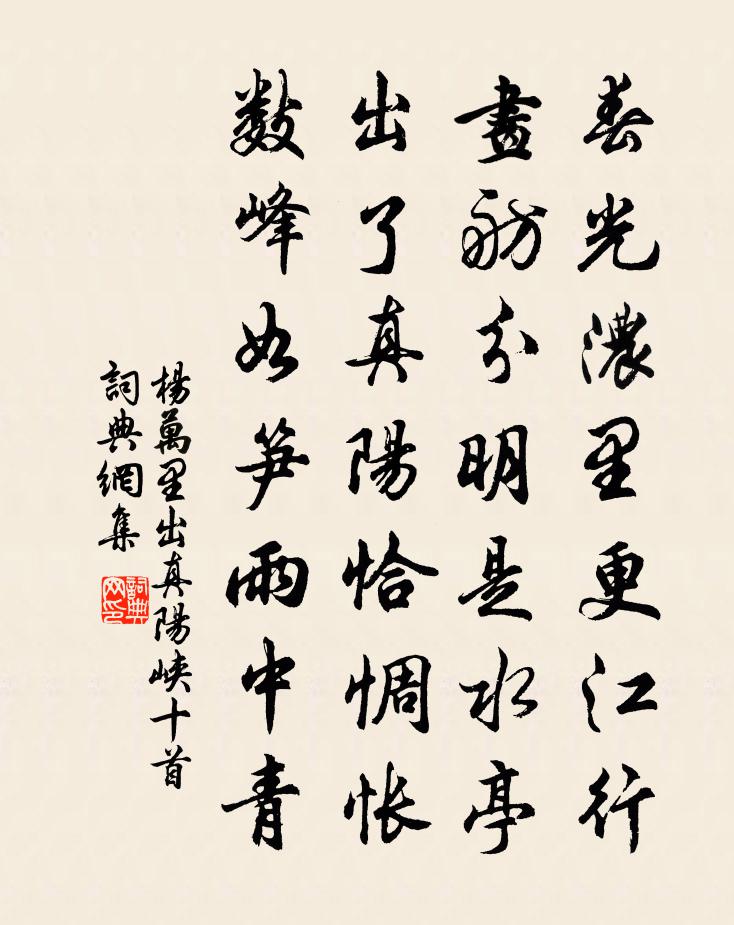 春光濃里更江行
畫舫分明是水亭
出了真陽恰惆怅
数峰如笋雨中青
楊萬里出真陽峡十首
詞典網集
詞典網印